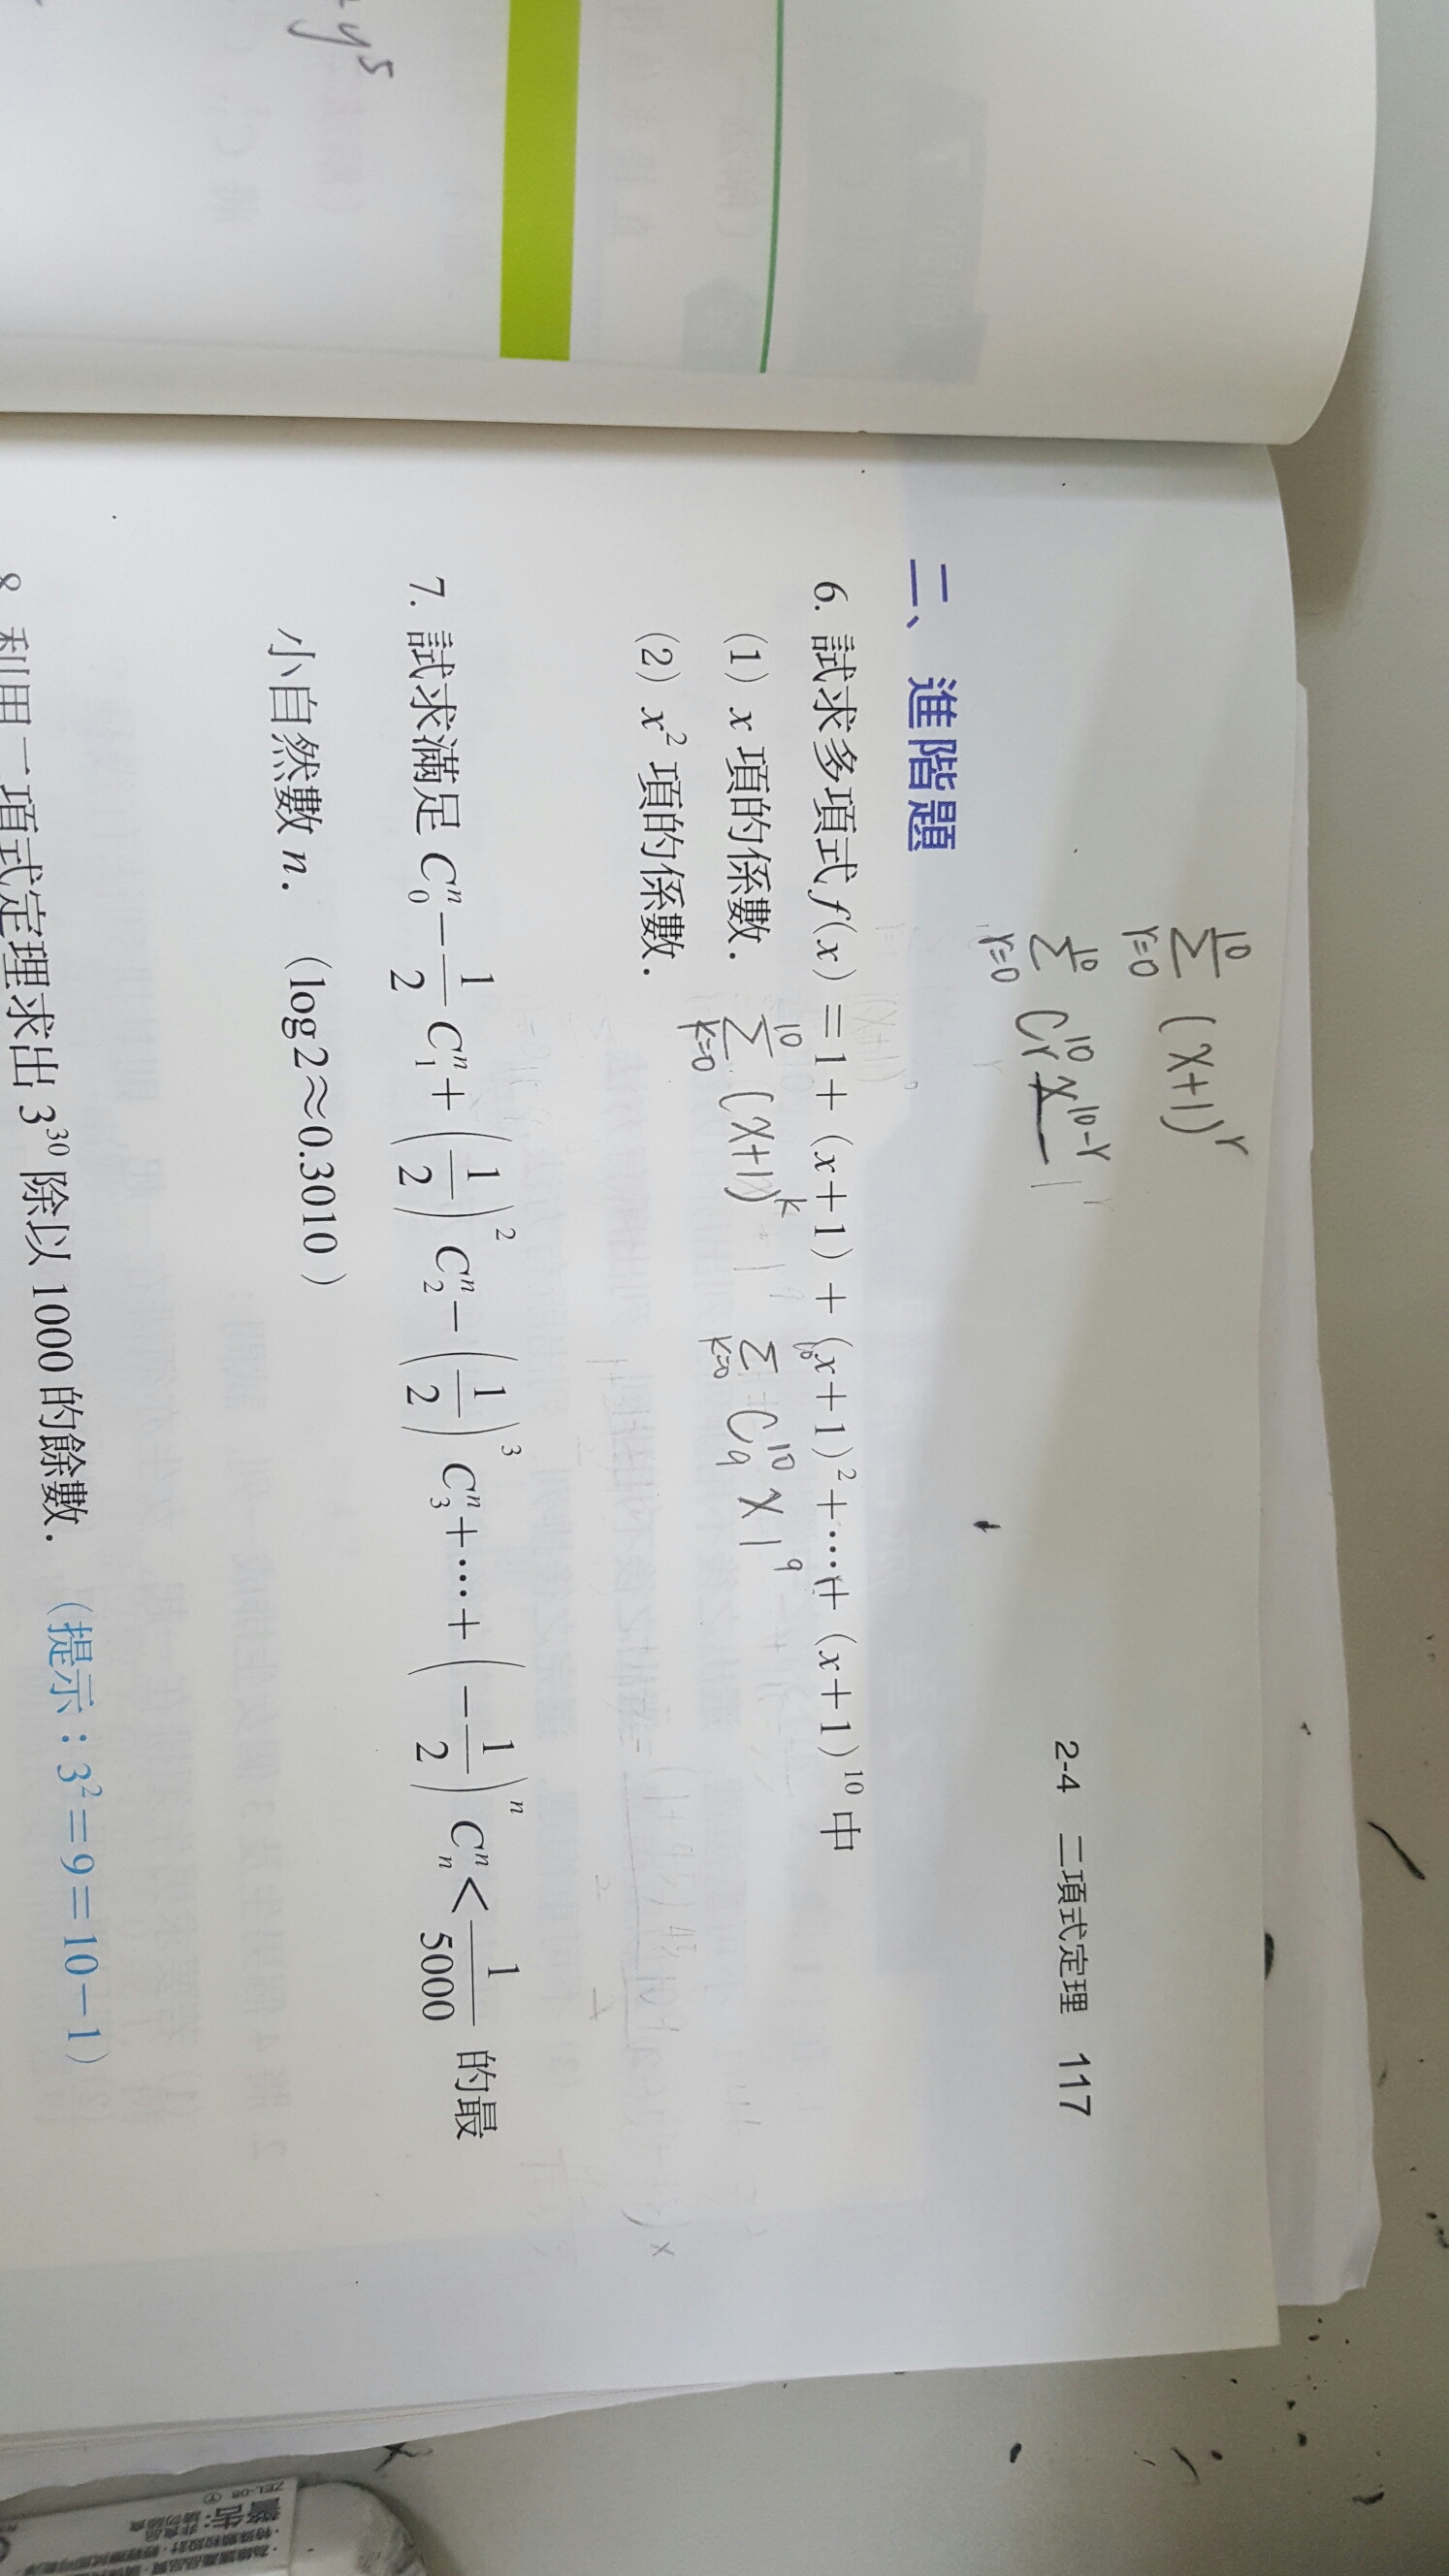 y⁵
2-4 二項式定理 117
$\sum_{r=0}^{10} (x+1)^r$
$\sum_{r=0}^{10} C_r^{10} x^{10-r} 1^r$
二、進階題
6. 試求多項式 f(x) = 1 + (x+1) + (x+1)² + ⋯ + (x+1)¹⁰ 中
(1) x 項的係數.
$\sum_{k=0}^{10} (x+1)^k$ $\sum_{k=0}^{10} C_9^{10} x 1^9$
(2) x² 項的係數.
7. 試求滿足 $C_0^n - \frac{1}{2} C_1^n + \left(\frac{1}{2}\right)^2 C_2^n - \left(\frac{1}{2}\right)^3 C_3^n + \cdots + \left(-\frac{1}{2}\right)^n C_n^n < \frac{1}{5000}$ 的最
小自然數 n. (log2≈0.3010)
8 利用二項式定理求出 3³⁰ 除以 1000 的餘數. (提示:3²=9=10-1)
ZEL-08